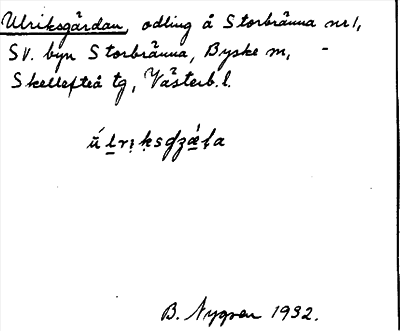 Ulriksgärdan, odling å Storbränna nr 1,
SV. byn Storbränna, Byske m, -
Skellefteå tg, Västerb. l.
B. Nygren 1932.